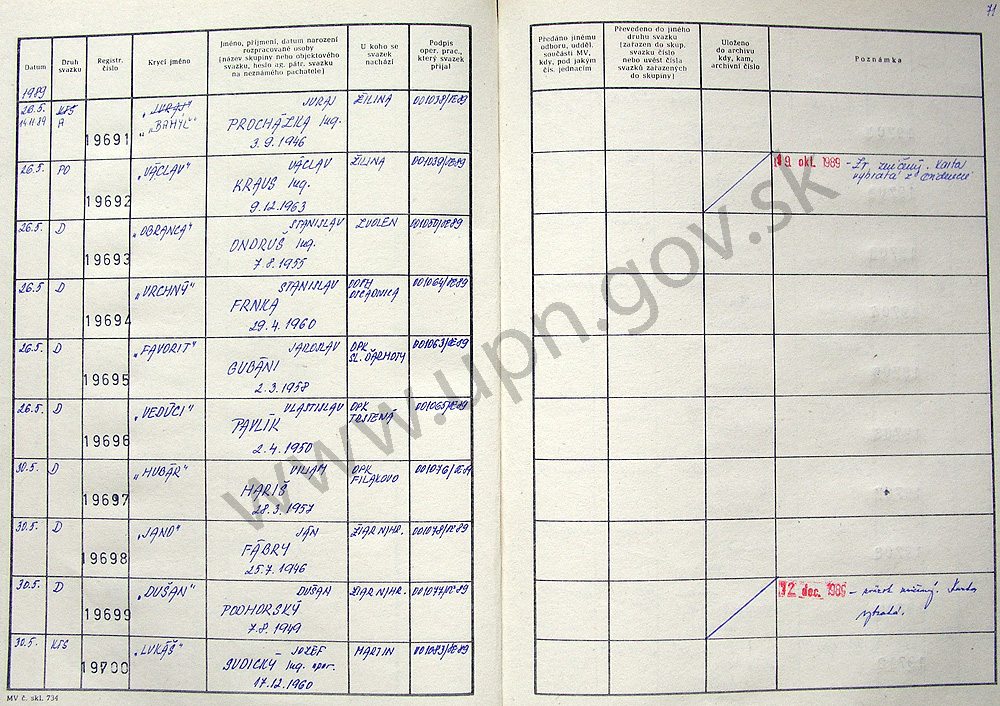 71
Datum
Druh svazku
Registr. číslo
Krycí jméno
Jméno, příjmení, datum narození
rozpracované osoby
(název skupiny nebo objektového
svazku, heslo ag. pátr. svazku
na neznámého pachatele)
U koho se
svazek
nachází
Podpis
oper. prac.,
který svazek
přijal
Předáno jinému
odboru, udděl.
součásti MV,
kdy, pod jakým
čís. jednacím
Převedeno do jiného
druhu svazku
(zařazen do skup.
svazku číslo
nebo uvést čísla
svazků zařazených
do skupiny)
Uloženo
do archivu
kdy, kam,
archivní číslo
Poznámka
1989
26.5. KTS 19691 „JURAJ“ JURAJ ŽILINA 001038/OE89
14.11.89 A „BAHÝL“ PROCHÁZKA Ing.
3.9.1946
26.5. PO 19692 „VÁCLAV“ VÁCLAV ŽILINA 001039/OE89 19. okt. 1989 - zničený. Karta
KRAUS Ing. vybratá z evidencie
9.12.1963
26.5. D 19693 „OBRANCA“ STANISLAV ZVOLEN 001050/OE89
ONDRUŠ Ing.
7.8.1955
26.5. D 19694 „VRCHNÝ“ STANISLAV OOPK OŠČADNICA 001064/OE89
FRNKA
29.4.1960
26.5. D 19695 „FAVORIT“ JAROSLAV OPK SL. ĎARMOTY 001063/OE89
GUBÁNI
2.3.1958
26.5. D 19696 „VEDÚCI“ VLASTISLAV OPK TRSTENÁ 001065/OE89
PAVLÍK
2.4.1950
30.5. D 19697 „HUBÁR“ VILIAM OPK FIĽAKOVO 001076/OE89
HARIŠ
28.3.1957
30.5. D 19698 „JANO“ JÁN ŽIAR N/HR. 001078/OE89
FÁBRY
25.7.1946
30.5. D 19699 „DUŠAN“ DUŠAN ŽIAR N/HR. 001077/OE89 12. dec. 1989 - zväzok zničený. Karta
PODHORSKÝ vybratá.
7.8.1949
30.5. KTS 19700 „LUKÁŠ“ JOZEF MARTIN 001083/OE89
JUDICKÝ Ing.
17.12.1960
MV č. skl. 734
www.upn.gov.sk